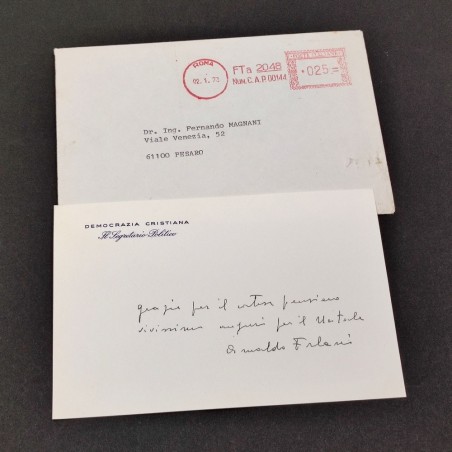 ROMA
02.1.73
FTa 2048
Num. C.A.P. 00144
POSTE ITALIANE
025
Dr. Ing. Fernando MAGNANI
Viale Venezia, 52
61100 PESARO
DEMOCRAZIA CRISTIANA
Il Segretario Politico
grazie per il cortese pensiero
vivissimi auguri per il Natale
Arnaldo Forlani